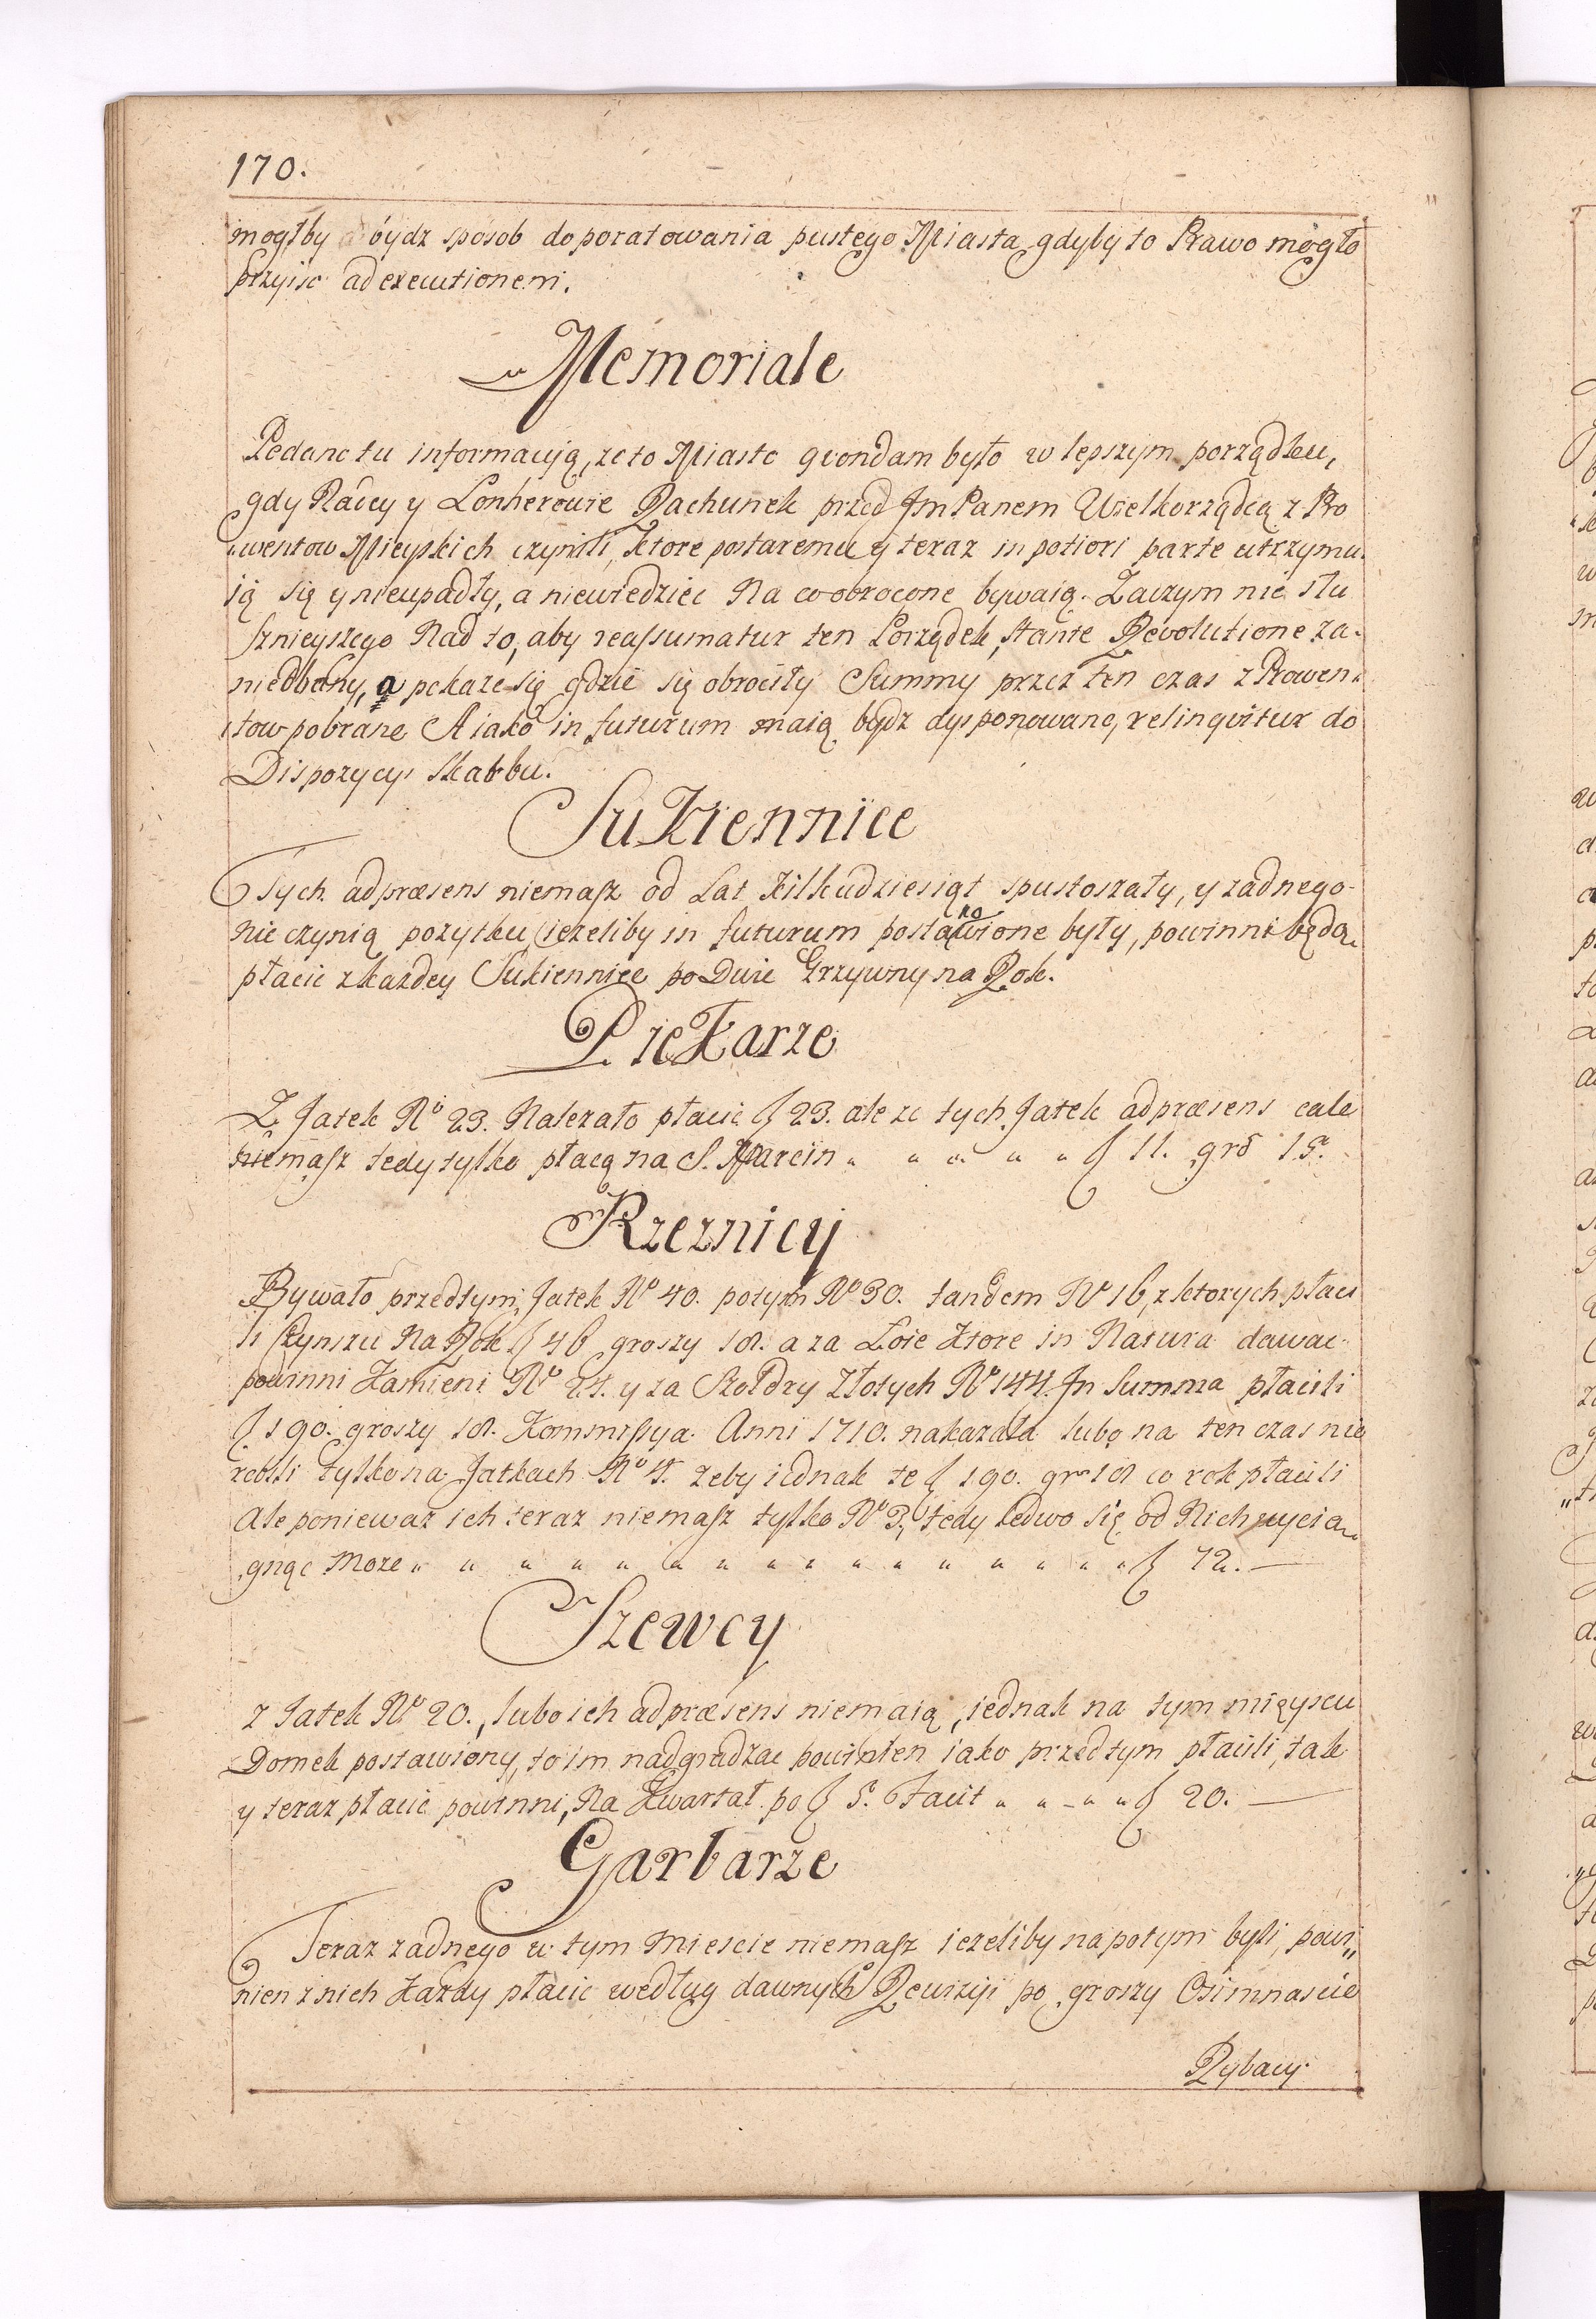 170.
mogłby bydz sposob do poratowania pustego Miasta gdyby to Prawo mogło
przyisc ad executionem.
Memoriale
Podano tu informacyą, ze to Miasto qvondam było w lepszym porządku,
gdy Raďcy y Lonherowie Rachunek przed Jm Panem Wielkorządcą z Pro
„wentow Mieyskich czynili, Ktore postaremu y teraz in potiori parte utrzymu„
ią się y nieupadły, a niewiedziec Na co obrocone bywaią. Zaczym nic słu
sznieyszego Nad to, aby reassumatur ten Porządek, stante Revolutione za„
niedbany, a pokaze się gdzie się obrociły Summy przez ten czas z Prowen„
tow pobrane A iako in futurum maią bydz dysponowane, relinqvitur do
Dispozycyi Skarbu.
Sukiennice
Tych ad præsens niemasz od Lat Kilkudziesiąt spustoszały, y zadnego
nie czynią pozytku, iezeliby in futurum postanowione były, powinni będą
płacic z kazdey Sukiennice po Dwie Grzywny na Rok.
Piekarze
Z Jatek No 23. Nalezało płacic f 23. ale ze tych Jatek ad præsens cale
niemasz tedy tylko płacą na S. Marcin „ „ „ „ „ f 11. gro 15.
Rzeznicy
Bywało przedtym Jatek No 40. potym No 30. tandem No 16, z ktorych płaci
li Czynszu Na Rok f 46 groszy 18. a za Łoie Ktore in Natura dawac
powinni Kamieni No 24. y za Szołdry Złotych No 144. Jn Summa płacili
f 190. groszy 18. Kommissya Anni 1710. nakazała lubo na ten czas nie
robili tylko na Jatkach No 4. zeby iednak te f 190. gr 18 co rok płacili
Ale poniewaz ich teraz niemasz tylko No 3, tedy ledwo się od Nich wycią„
gnąc moze „ „ „ „ „ „ „ „ „ „ „ „ „ „ „ f 72. —
Szewcy
z Jatek No 20., lubo ich ad præsens niemaią, iednak na tym mieyscu
Domek postawiony, to im nadgradzac powinien iako przed tym płacili, tak
y teraz płacic powinni, Na Kwartał po f 5. Facit „ „ „ „ f 20. —
Garbarze
Teraz zadnego w tym Miescie niemasz iezeliby na potym byli, powi„
nien z nich Kazdy płacic według dawnych Rewizyi po groszy Osimnascie
Rybacy.